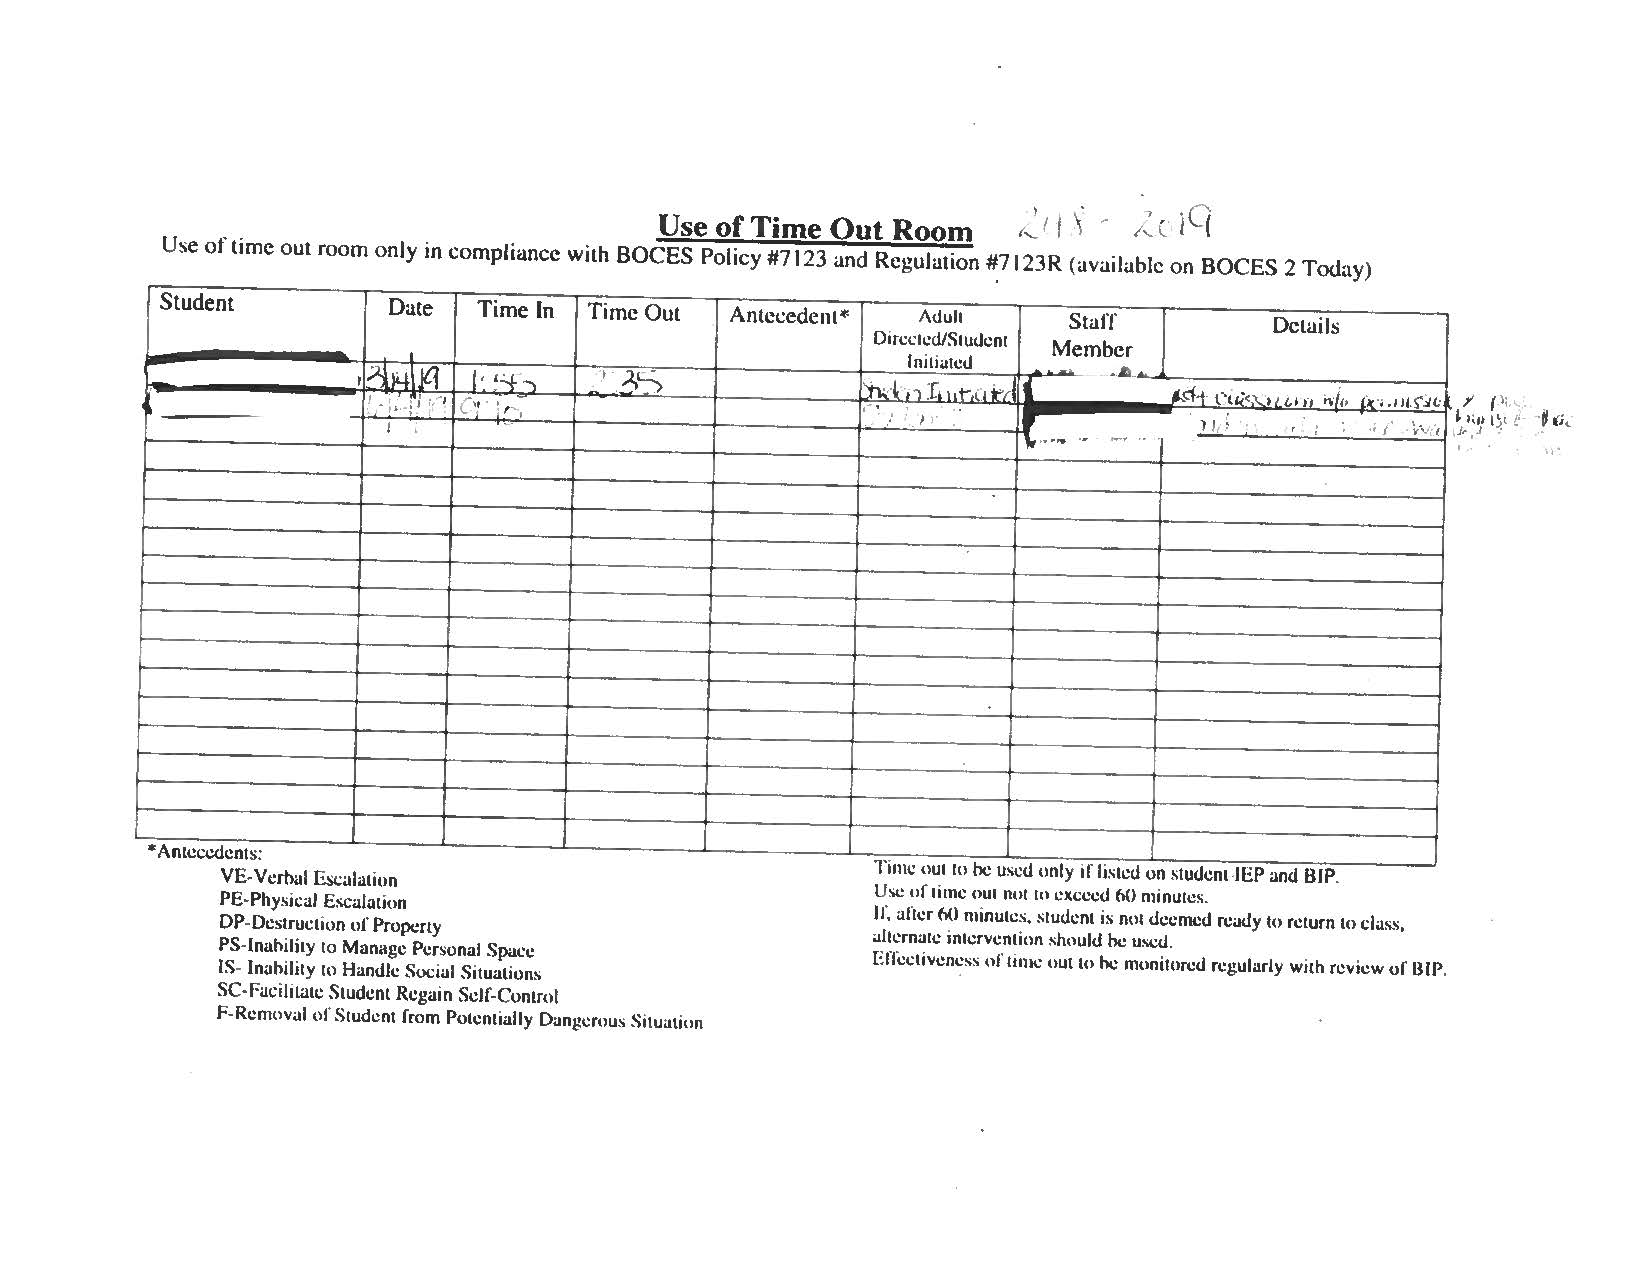 Use of Time Out Room 2018 - 2019
Use of time out room only in compliance with BOCES Policy #7123 and Regulation #7123R (available on BOCES 2 Today)
Student Date Time In Time Out Antecedent* Adult Directed/Student Initiated Staff Member Details
3/4/19 1:55 2:35 Initiated left classroom w/o
9:10
*Antecedents:
VE-Verbal Escalation
PE-Physical Escalation
DP-Destruction of Property
PS-Inability to Manage Personal Space
IS- Inability to Handle Social Situations
SC-Facilitate Student Regain Self-Control
F-Removal of Student from Potentially Dangerous Situation
Time out to be used only if listed on student IEP and BIP.
Use of time out not to exceed 60 minutes.
If, after 60 minutes, student is not deemed ready to return to class,
alternate intervention should be used.
Effectiveness of time out to be monitored regularly with review of BIP.